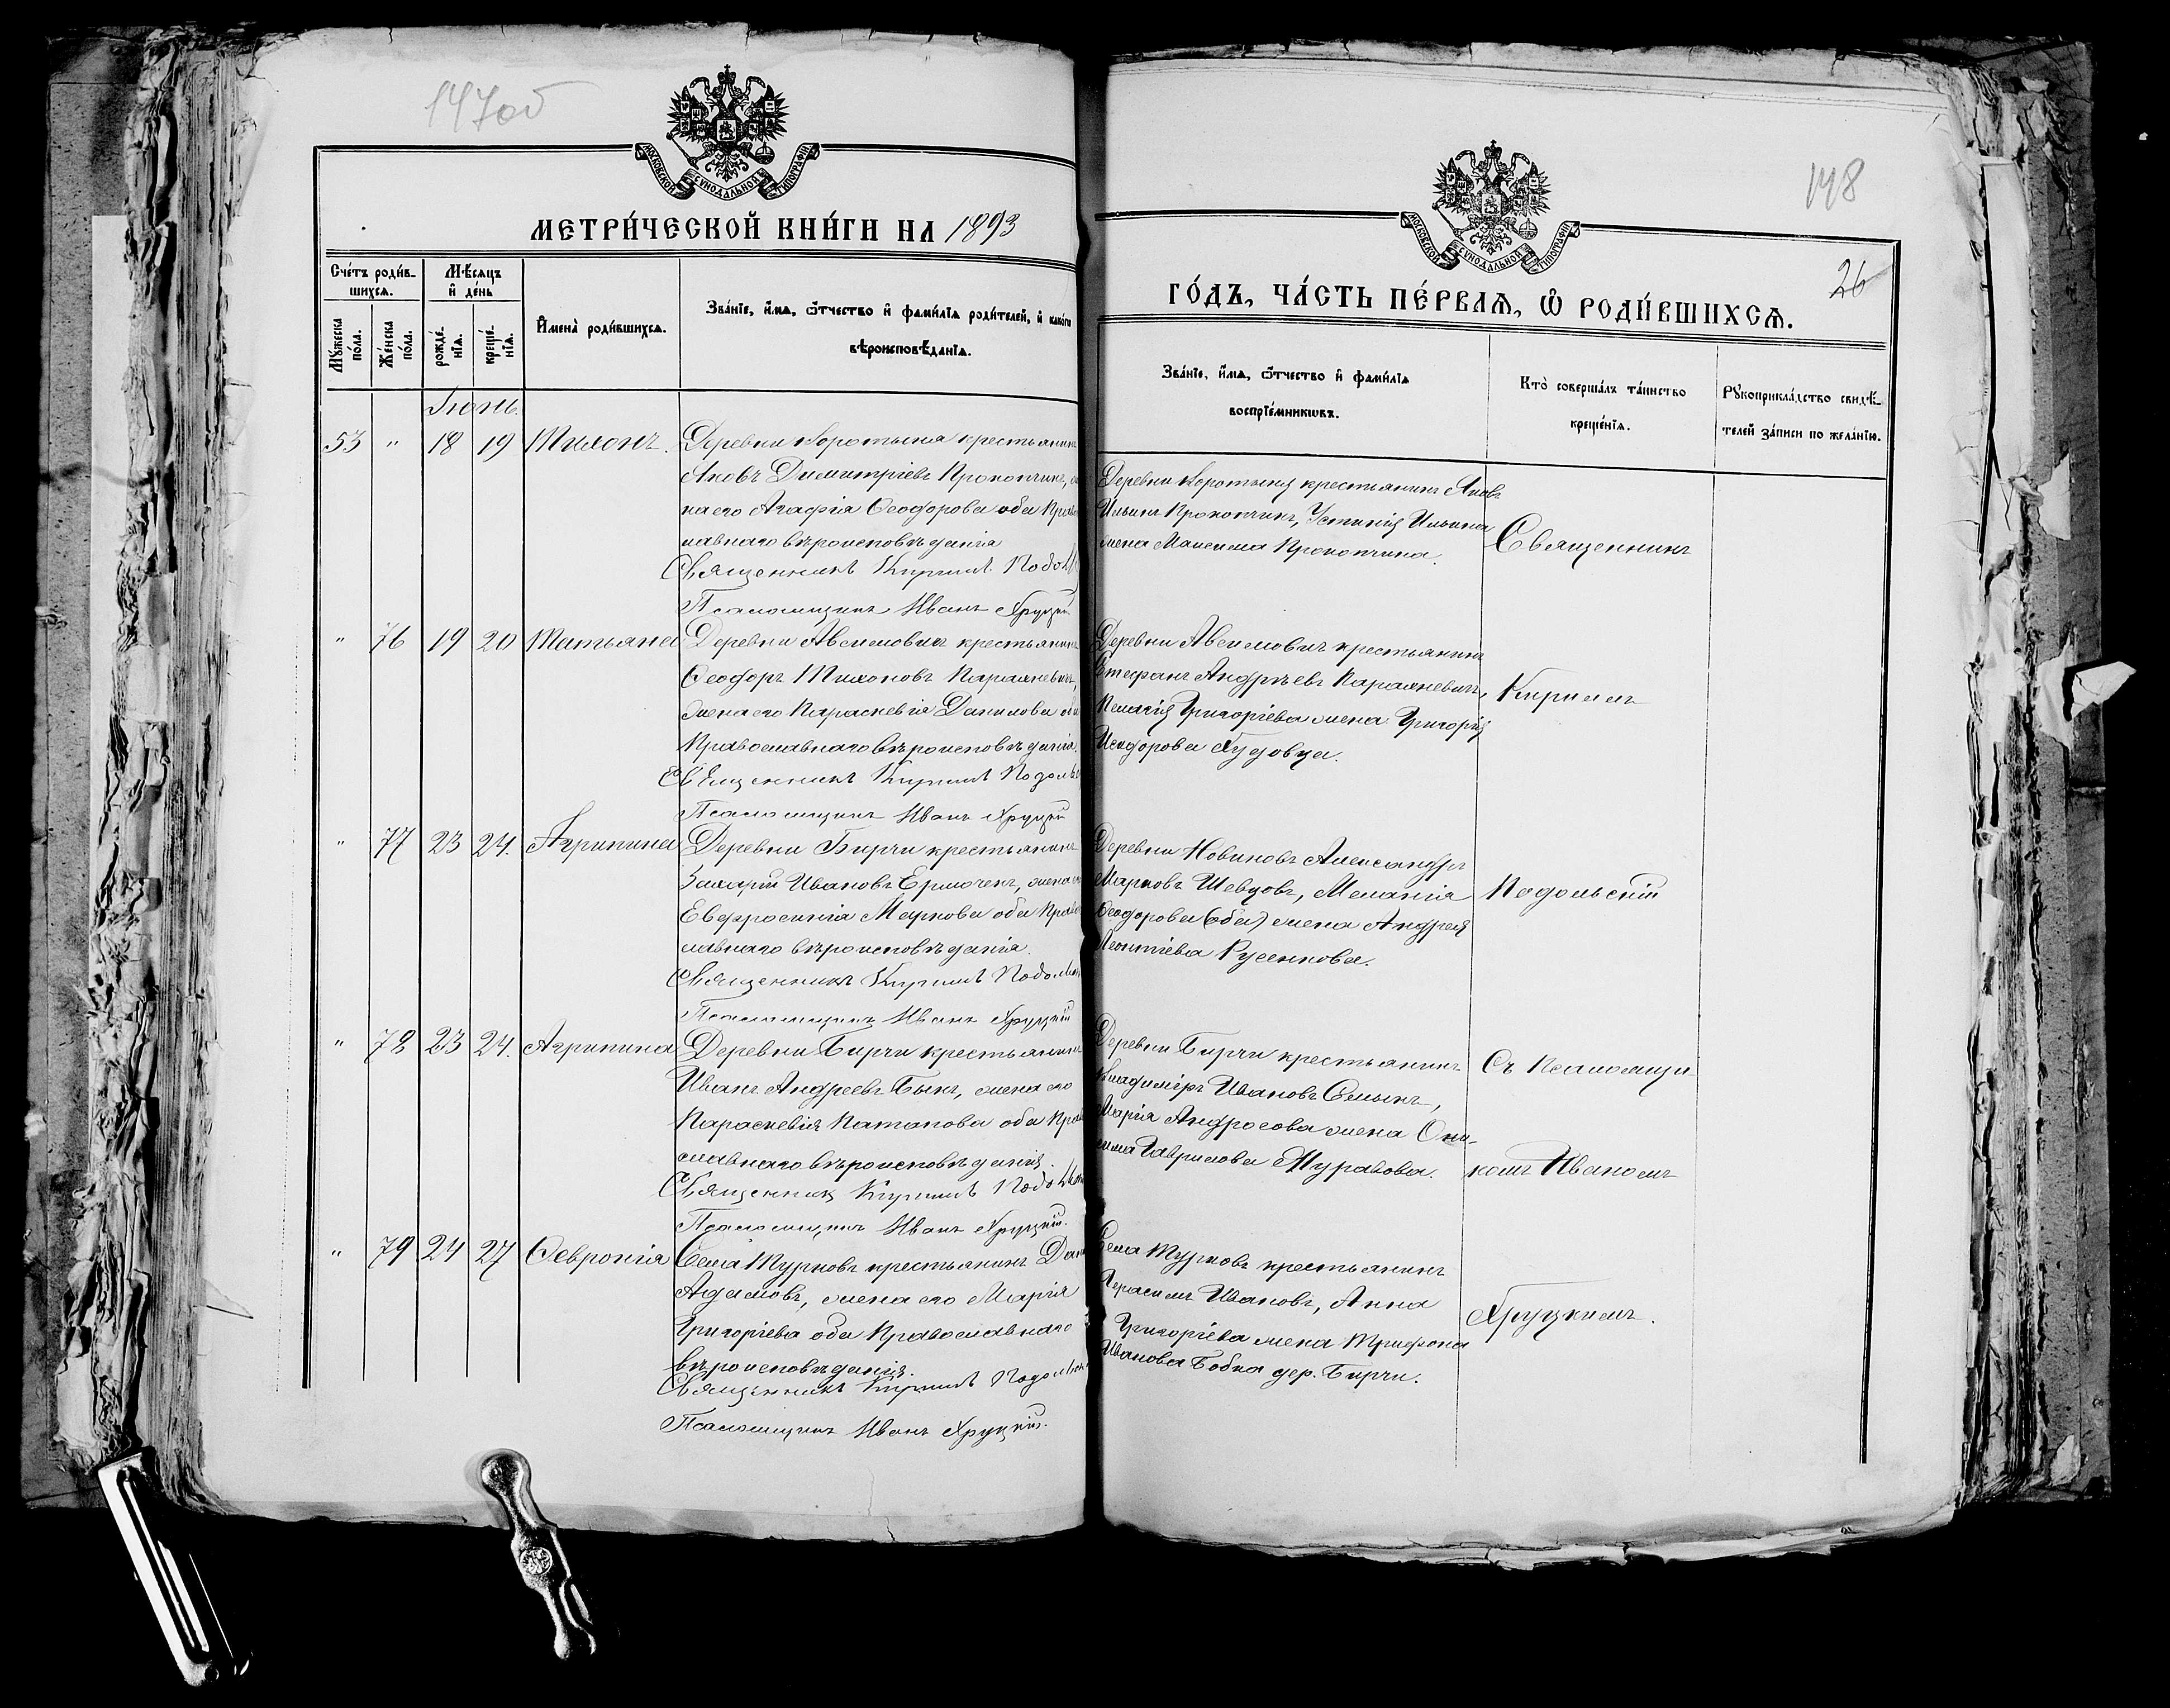 147об
МОСКОВСКОЙ СѴНОДАЛЬНОЙ ТИПОГРАФІИ
МЕТРИ́ЧЕСКОЙ КНИ́ГИ НА 1893
Сче́тъ роди́в-
шихсѧ.
Мѣ́сѧцъ
и҆ де́нь
И҆мена̀ роди́вшихсѧ.
Зва́нїе, и҆́мѧ, ѻ҆́тчество и҆ фами́лїѧ роди́телей, и҆ како́гѡ
вѣроисповѣ́данїѧ.
Мꙋ́жеска по́ла.
Же́нска по́ла.
рожде́-нїѧ.
креще́-нїѧ.
Іюнь.
53 " 18 19 Тихонъ. Деревни Коротыча крестьянинъ
Яковъ Димитріевъ Прокопчикъ,
на его Агафія Ѳеодорова оба Право
славнаго вѣроисповѣданія
Священникъ Кириллъ Подол
Псаломщикъ Иванъ Хруцкій
" 76 19 20 Татьяна Деревни Авсимовичъ крестьянинъ
Ѳеодоръ Тихоновъ Парахневичъ,
жена его Параскевія Данилова оба
Православнаго вѣроисповѣданія.
Священникъ Кириллъ Подольс
Псаломщикъ Иванъ Хруцкій
" 77 23 24. Агрипина Деревни Бирчи крестьянинъ
Захарій Ивановъ Ермоченк, жена
Евфросинія Маркова оба Право
славнаго вѣроисповѣданія.
Священникъ Кириллъ Подольс
Псаломщикъ Иванъ Хруцкій
" 78 23 24. Агрипина Деревни Бирчи крестьянинъ
Иванъ Андреевъ Быкъ, жена его
Параскевія Потапова оба Право
славнаго вѣроисповѣданія.
Священникъ Кириллъ Подольс
Псаломщикъ Иванъ Хруцкій.
" 79 24 27 Ѳевронія Села Турковъ крестьянинъ
Адамовъ, жена его Марія
Григоріева оба Православнаго
вѣроисповѣданія.
Священникъ Кириллъ Подольс
Псаломщикъ Иванъ Хруцкій.
148
МОСКОВСКОЙ СѴНОДАЛЬНОЙ ТИПОГРАФІИ
26
ГО́ДЪ, ЧА́СТЬ ПЕ́РВАѦ, Ѡ҆ РОДИ́ВШИХСѦ.
Зва́нїе, и҆́мѧ, ѻ҆́тчество и҆ фами́лїѧ
воспрїе́мникѡвъ.
Кто̀ соверша́лъ та́инство
креще́нїѧ.
Рꙋкоприкла́дство свидѣ́-
телей за́писи по жела́нїю.
Деревни Коротыча крестьянинъ Яковъ
Ильинъ Прокопчикъ, Устинія Ильина
жена Максима Прокопчика.
Священникъ
Деревни Авсимовичъ крестьянинъ
Стефанъ Андреевъ Парахневичъ,
Пелагія Григоріева жена Григорія
Исидорова Гудовца.
Кириллъ
Деревни Новиковъ Александръ
Марковъ Шевцовъ, Меланія
Ѳеодорова (оба) жена Андрея
Леонтіева Русенкова.
Подольскій
Деревни Бирчи крестьянинъ
Владиміръ Ивановъ Сныкъ,
Марія Андросова жена Они-
сима Гаврилова Муравова.
Съ Псаломщи-
комъ Иваномъ
Села Турковъ крестьянинъ
Герасимъ Ивановъ, Анна
Григоріева жена Трифона
Иванова Бобка дер. Бирчи.
Хруцкимъ.